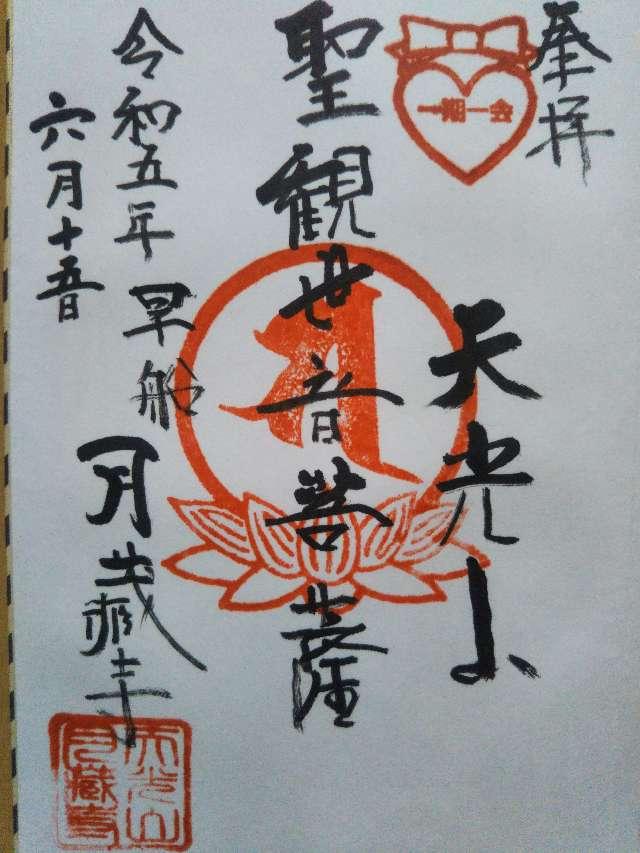 奉拝
一期一会
天光山
聖観世音菩薩
令和五年
六月十五日
早船
月蔵寺
天光山
月蔵寺